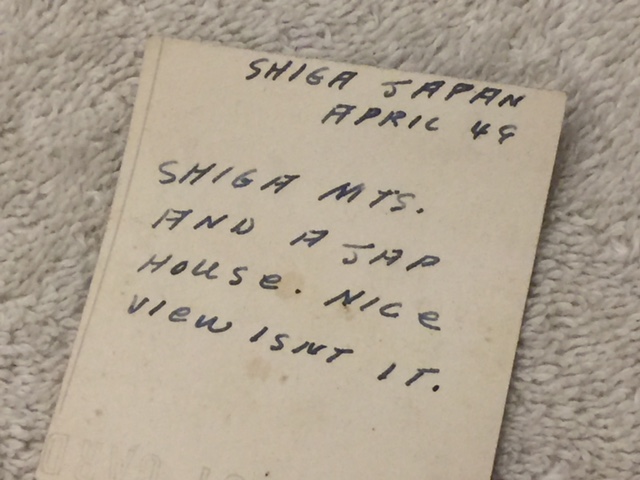 SHIGA JAPAN
APRIL 49
SHIGA MTS.
AND A JAP
HOUSe. NICe
VIeW ISNT IT.